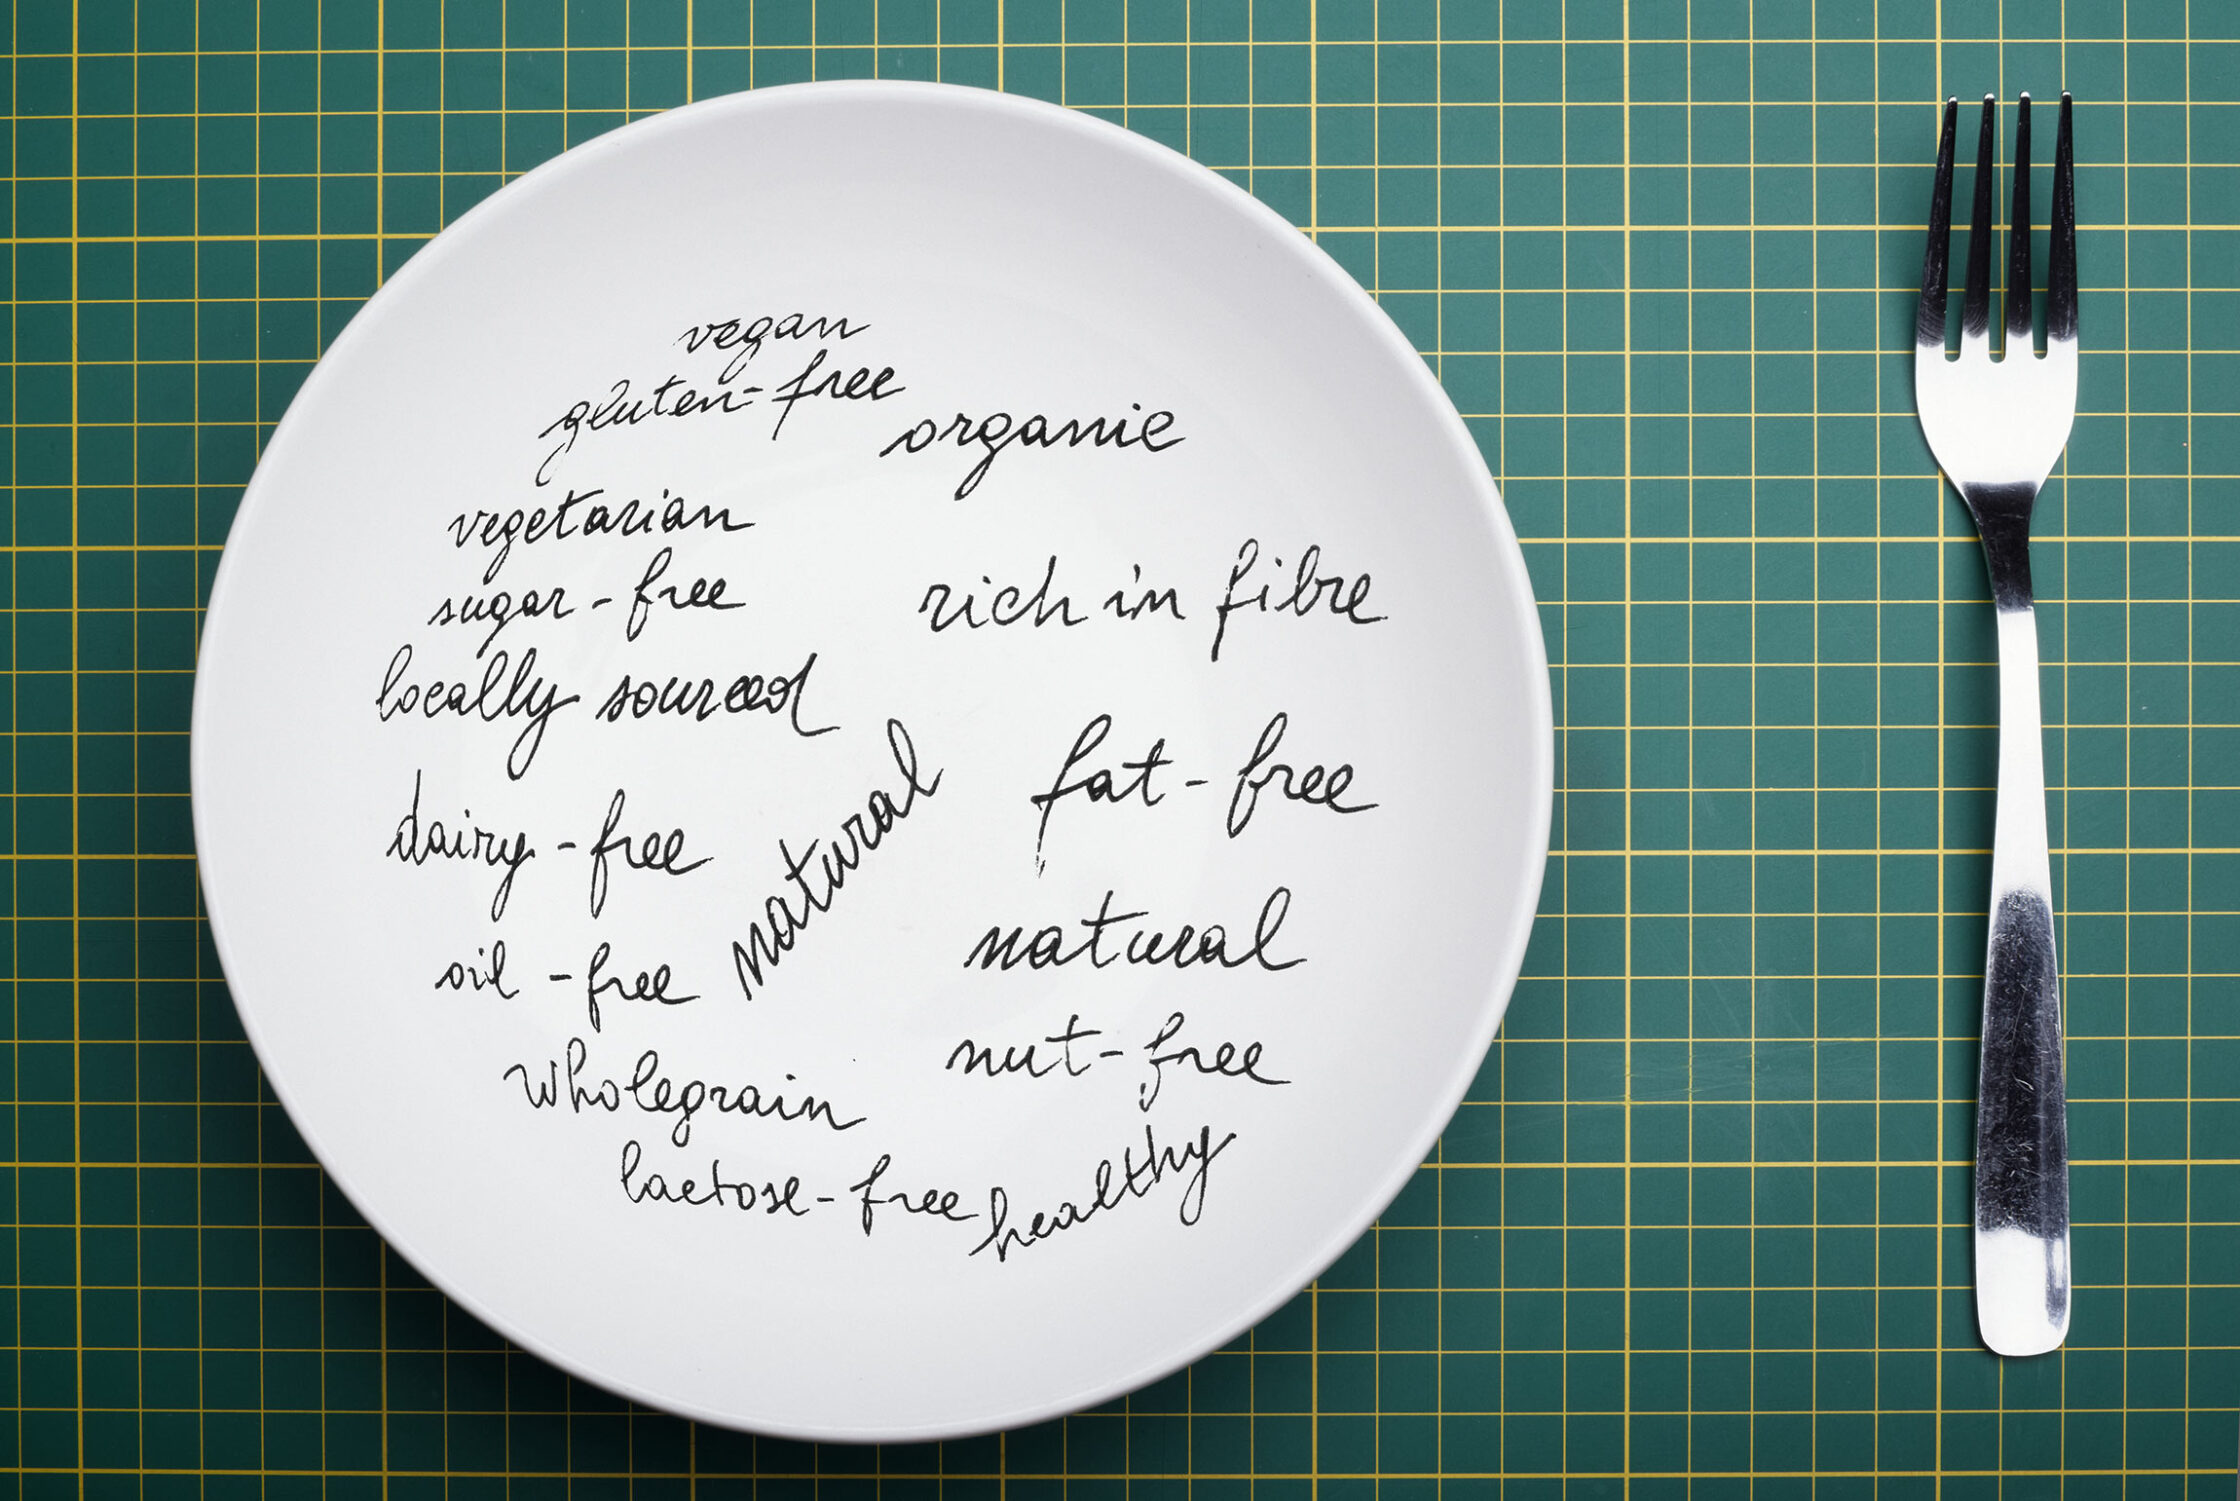 vegan
gluten-free
organic
vegetarian
sugar-free
rich in fibre
locally sourced
fat-free
dairy-free
natural
oil-free
natural
wholegrain
nut-free
lactose-free
healthy